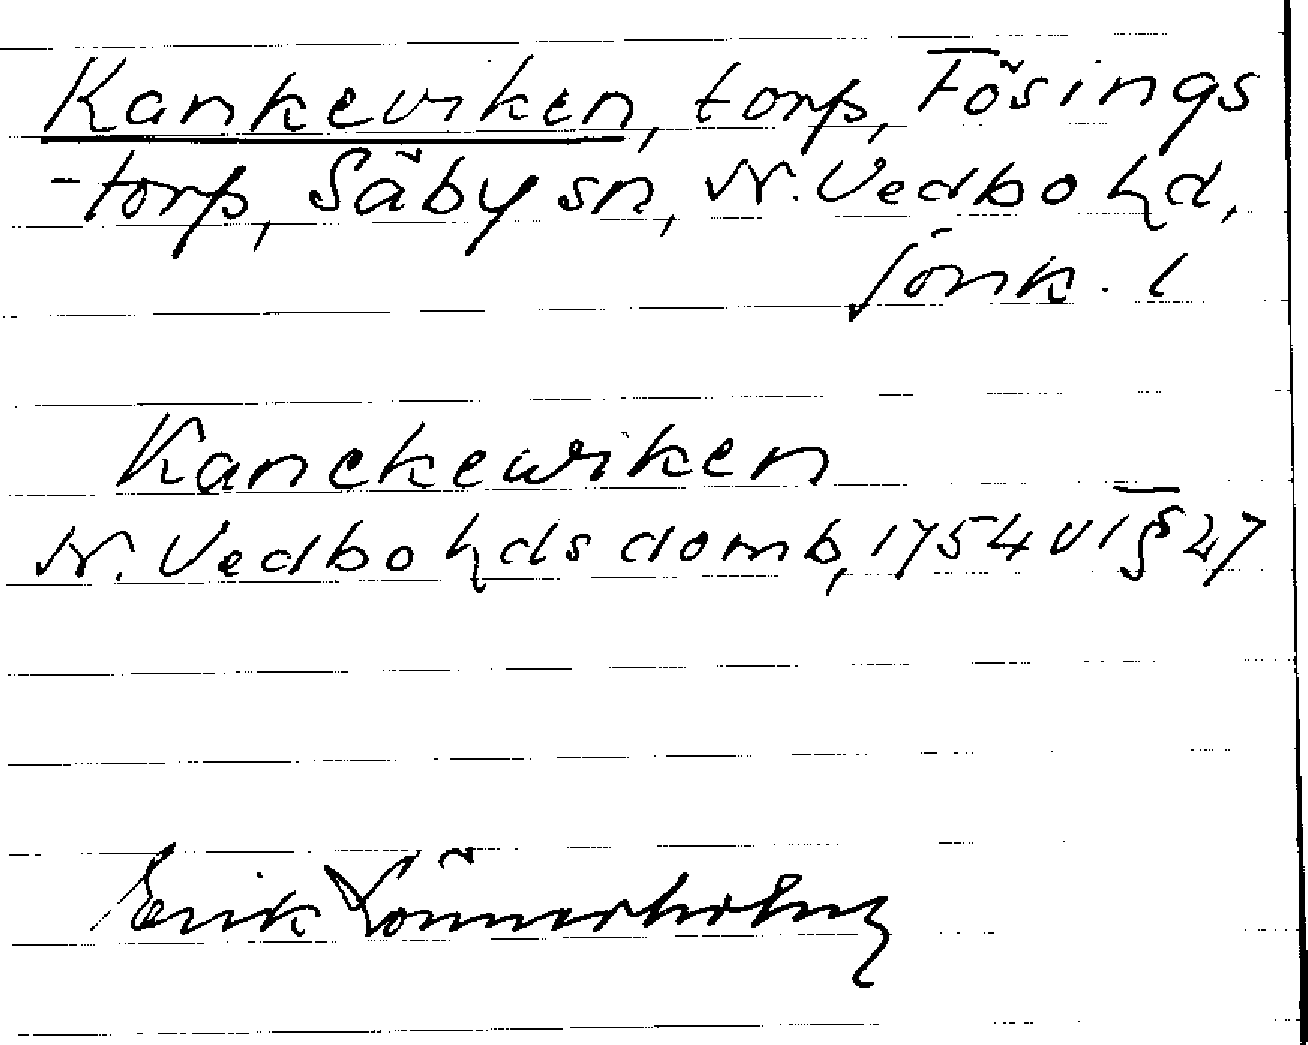 Kankeviken, torp, Fösings
-torp, Säby sn, N. Vedbo hd,
Jönk. l
Kanckewiken
N. Vedbo hds domb, 1754 VI § 27
Erik Lönnerholm